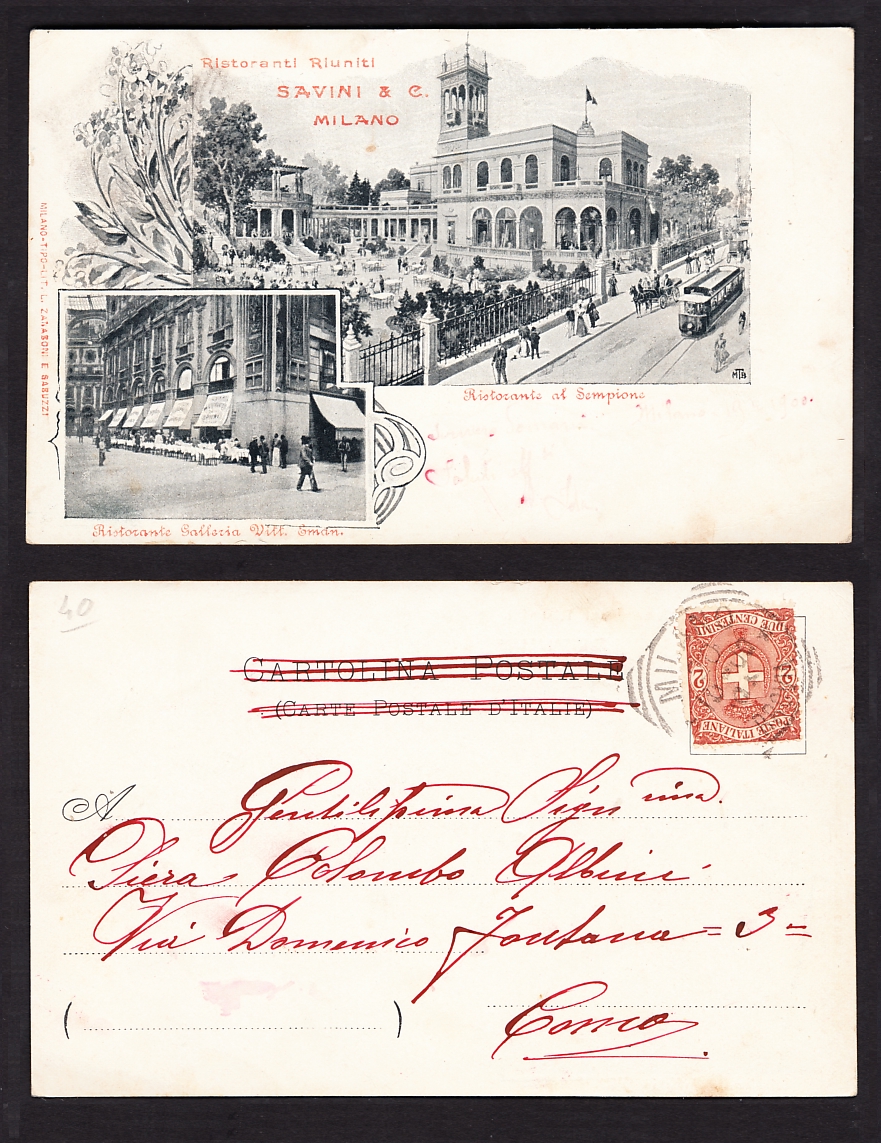 Ristoranti Riuniti
SAVINI & C.
MILANO
MILANO-TIPO-LIT. L. ZARABONI E GABUZZI
MTB
Ristorante al Sempione
Ristorante Galleria Vitt. Eman.
40
CARTOLINA POSTALE
(CARTE POSTALE D'ITALIE)
DUE CENTESIMI
2 2
POSTE ITALIANE
A Gentilissima Sign
Piera Colombo Albini
Via Domenico Fontana = 3 =
Como